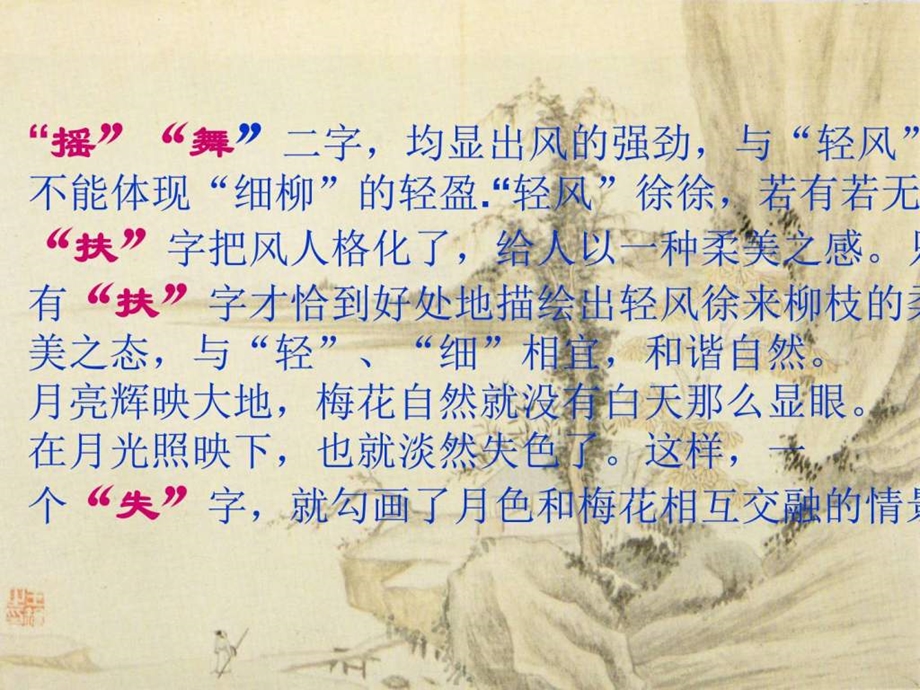 “摇” “舞” 二字，均显出风的强劲，与“轻风”
不能体现“细柳”的轻盈.“轻风”徐徐，若有若无
“扶”字把风人格化了，给人以一种柔美之感。只
有“扶”字才恰到好处地描绘出轻风徐来柳枝的柔
美之态，与“轻”、“细”相宜，和谐自然。
月亮辉映大地，梅花自然就没有白天那么显眼。
在月光照映下，也就淡然失色了。这样，一
个“失”字，就勾画了月色和梅花相互交融的情景